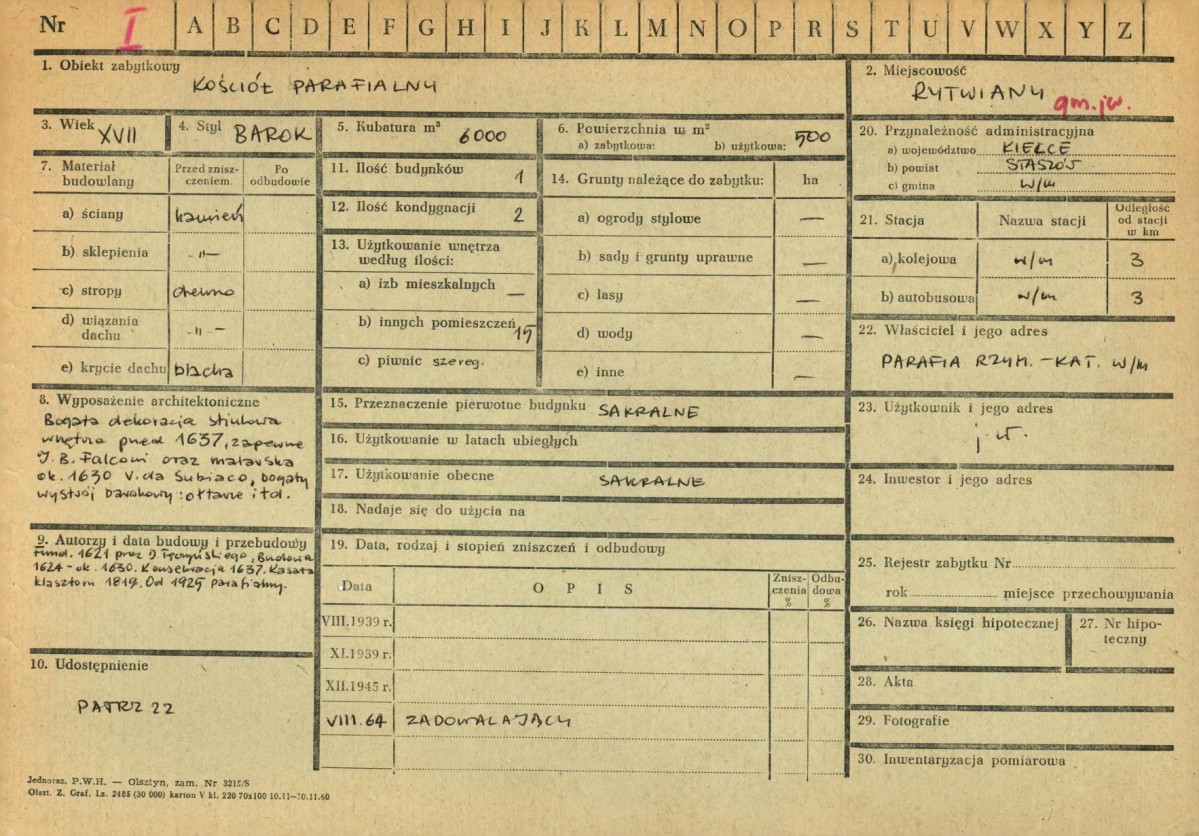 Nr I A B C D E F G H I J K L M N O P R S T U V W X Y Z
1. Obiekt zabytkowy
KOŚCIÓŁ PARAFIALNY
2. Miejscowość
RYTWIANY gm. jw.
3. Wiek XVII
4. Styl BAROK
5. Kubatura m³ 6000
6. Powierzchnia w m²
a) zabytkowa: b) użytkowa: 500
7. Materiał budowlany
Przed znisz-
czeniem
Po
odbudowie
a) ściany kamień
b) sklepienia -"-
c) stropy drewno
d) wiązania
dachu -"-
e) krycie dachu blacha
8. Wyposażenie architektoniczne
Bogata dekoracja stiukowa
wnętrza przed 1637, zapewne
J. B. Falconi oraz malarska
ok. 1630 V. da Subiaco, bogaty
wystrój barokowy: ołtarze itd.
9. Autorzy i data budowy i przebudowy
Fund. 1621 przez J. Tęczyńskiego, Budowa
1624 - ok. 1630. Konsekracja 1637. Kasata
klasztoru 1819. Od 1925 parafialny.
10. Udostępnienie
PATRZ 22
11. Ilość budynków 1
12. Ilość kondygnacji 2
13. Użytkowanie wnętrza
według ilości:
a) izb mieszkalnych —
b) innych pomieszczeń 15
c) piwnic szereg.
14. Grunty należące do zabytku: ha
a) ogrody stylowe —
b) sady i grunty uprawne —
c) lasy —
d) wody —
e) inne —
15. Przeznaczenie pierwotne budynku SAKRALNE
16. Użytkowanie w latach ubiegłych
17. Użytkowanie obecne SAKRALNE
18. Nadaje się do użycia na
19. Data, rodzaj i stopień zniszczeń i odbudowy
Data O P I S
Znisz-
czenia
%
Odbu-
dowa
%
VIII.1939 r.
XI.1939 r.
XII.1945 r.
VIII.64 ZADOWALAJĄCY
20. Przynależność administracyjna
a) województwo KIELCE
b) powiat STASZÓW
c) gmina w/m
21. Stacja Nazwa stacji
Odległość
od stacji
w km
a) kolejowa w/m 3
b) autobusowa w/m 3
22. Właściciel i jego adres
PARAFIA RZYM.-KAT. w/m
23. Użytkownik i jego adres
j.w.
24. Inwestor i jego adres
25. Rejestr zabytku Nr
rok miejsce przechowywania
26. Nazwa księgi hipotecznej
27. Nr hipo-
teczny
28. Akta
29. Fotografie
30. Inwentaryzacja pomiarowa
Jednoraz. P.W.H. — Olsztyn, zam. Nr 3215/S
Olszt. Z. Graf. Lz. 2485 (30 000) karton V kl. 220 70x100 10.11-30.11.60